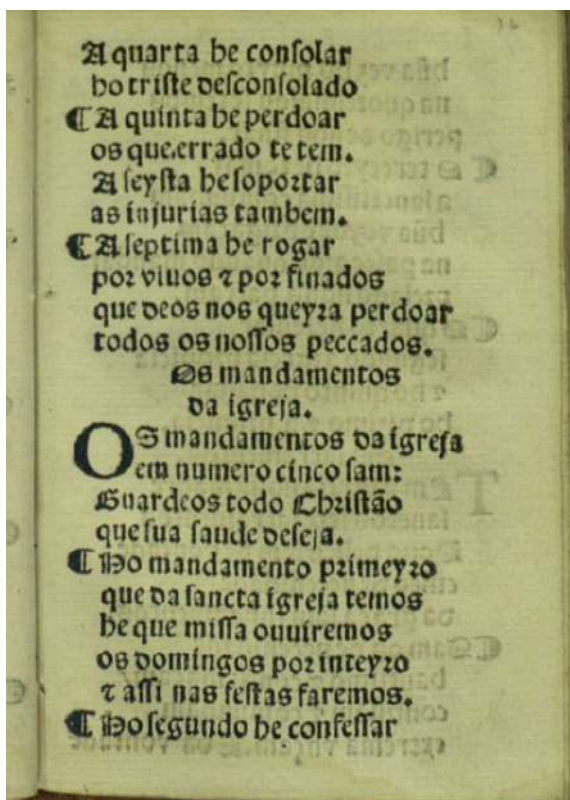 A quarta he consolar
ho triste desconsolado
¶ A quinta he perdoar
os que.errado te tem.
A seysta he soportar
as injurias tambem.
¶ A septima he rogar
por viuos ⁊ por finados
que deos nos queyra perdoar
todos os nossos peccados.
Os mandamentos
da igreja.
OS mandamentos da igreja
em numero cinco sam:
Guardeos todo Christão
que sua saude deseja.
¶ Ho mandamento primeyro
que da sancta igreja temos
he que missa ouuiremos
os domingos por inteyro
⁊ assi nas festas faremos.
¶ Ho segundo he confessar